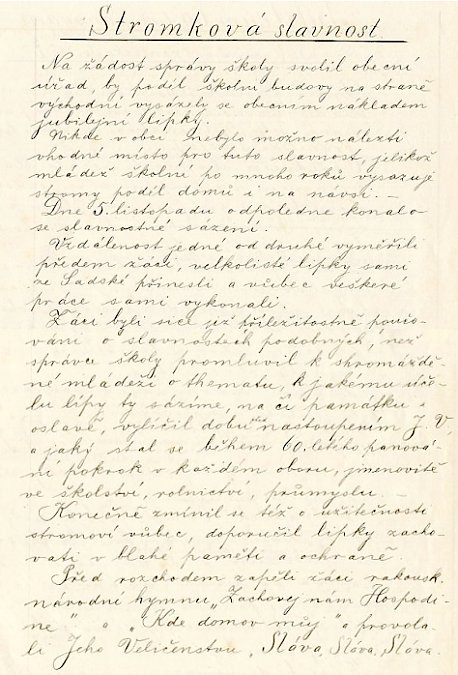 Stromková slavnost.
Na žádost správy školy svolil obecní
úřad, by podél školní budovy na straně
východní vysázely se obecním nákladem
jubilejní lípky.
Nikde v obci nebylo možno nalezti
vhodné místo pro tuto slavnost, jelikož
mládež školní po mnoho roků vysazuje
stromy podél domů i na návsi. –
Dne 5. listopadu odpoledne konalo
se slavnostně sázení.
Vzdálenost jedné od druhé vyměřili
předem žáci, velkolisté lípky sami
ze Sadské přinesli a vůbec veškeré
práce sami vykonali.
Žáci byli sice již příležitostně poučo-
váni o slavnostech podobných, než
správce školy promluvil k shromáždě-
né mládeži o thematu, k jakému úče-
lu lípy ty sázíme, na čí památku a
oslavě, vylíčil dobu nastoupením J. V.
a jaký stal se během 60.letého panová-
ní pokrok v každém oboru, jmenovitě
ve školství, rolnictví, průmyslu. –
Konečně zmínil se též o užitečnosti
stromoví vůbec, doporučil lípky zacho-
vati v blahé paměti a ochraně.
Před rozchodem zapěli žáci rakousk.
národní hymnu „Zachovej nám Hospodi-
ne" a „Kde domov můj" a provola-
li Jeho Veličenstvu „Sláva, Sláva, Sláva.